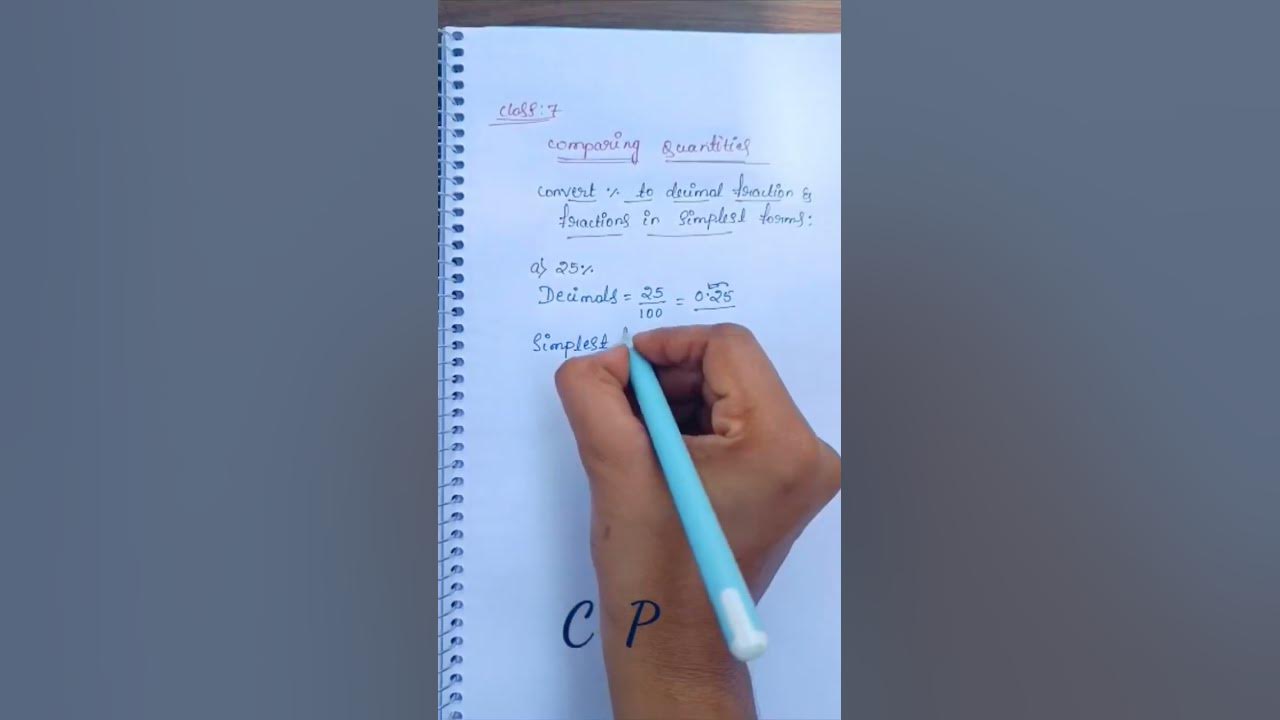 Class: 7
Comparing Quantities
Convert % to decimal fraction &
fractions in simplest forms:
a) 25%
Decimals = 25/100 = 0.25
Simplest
C P